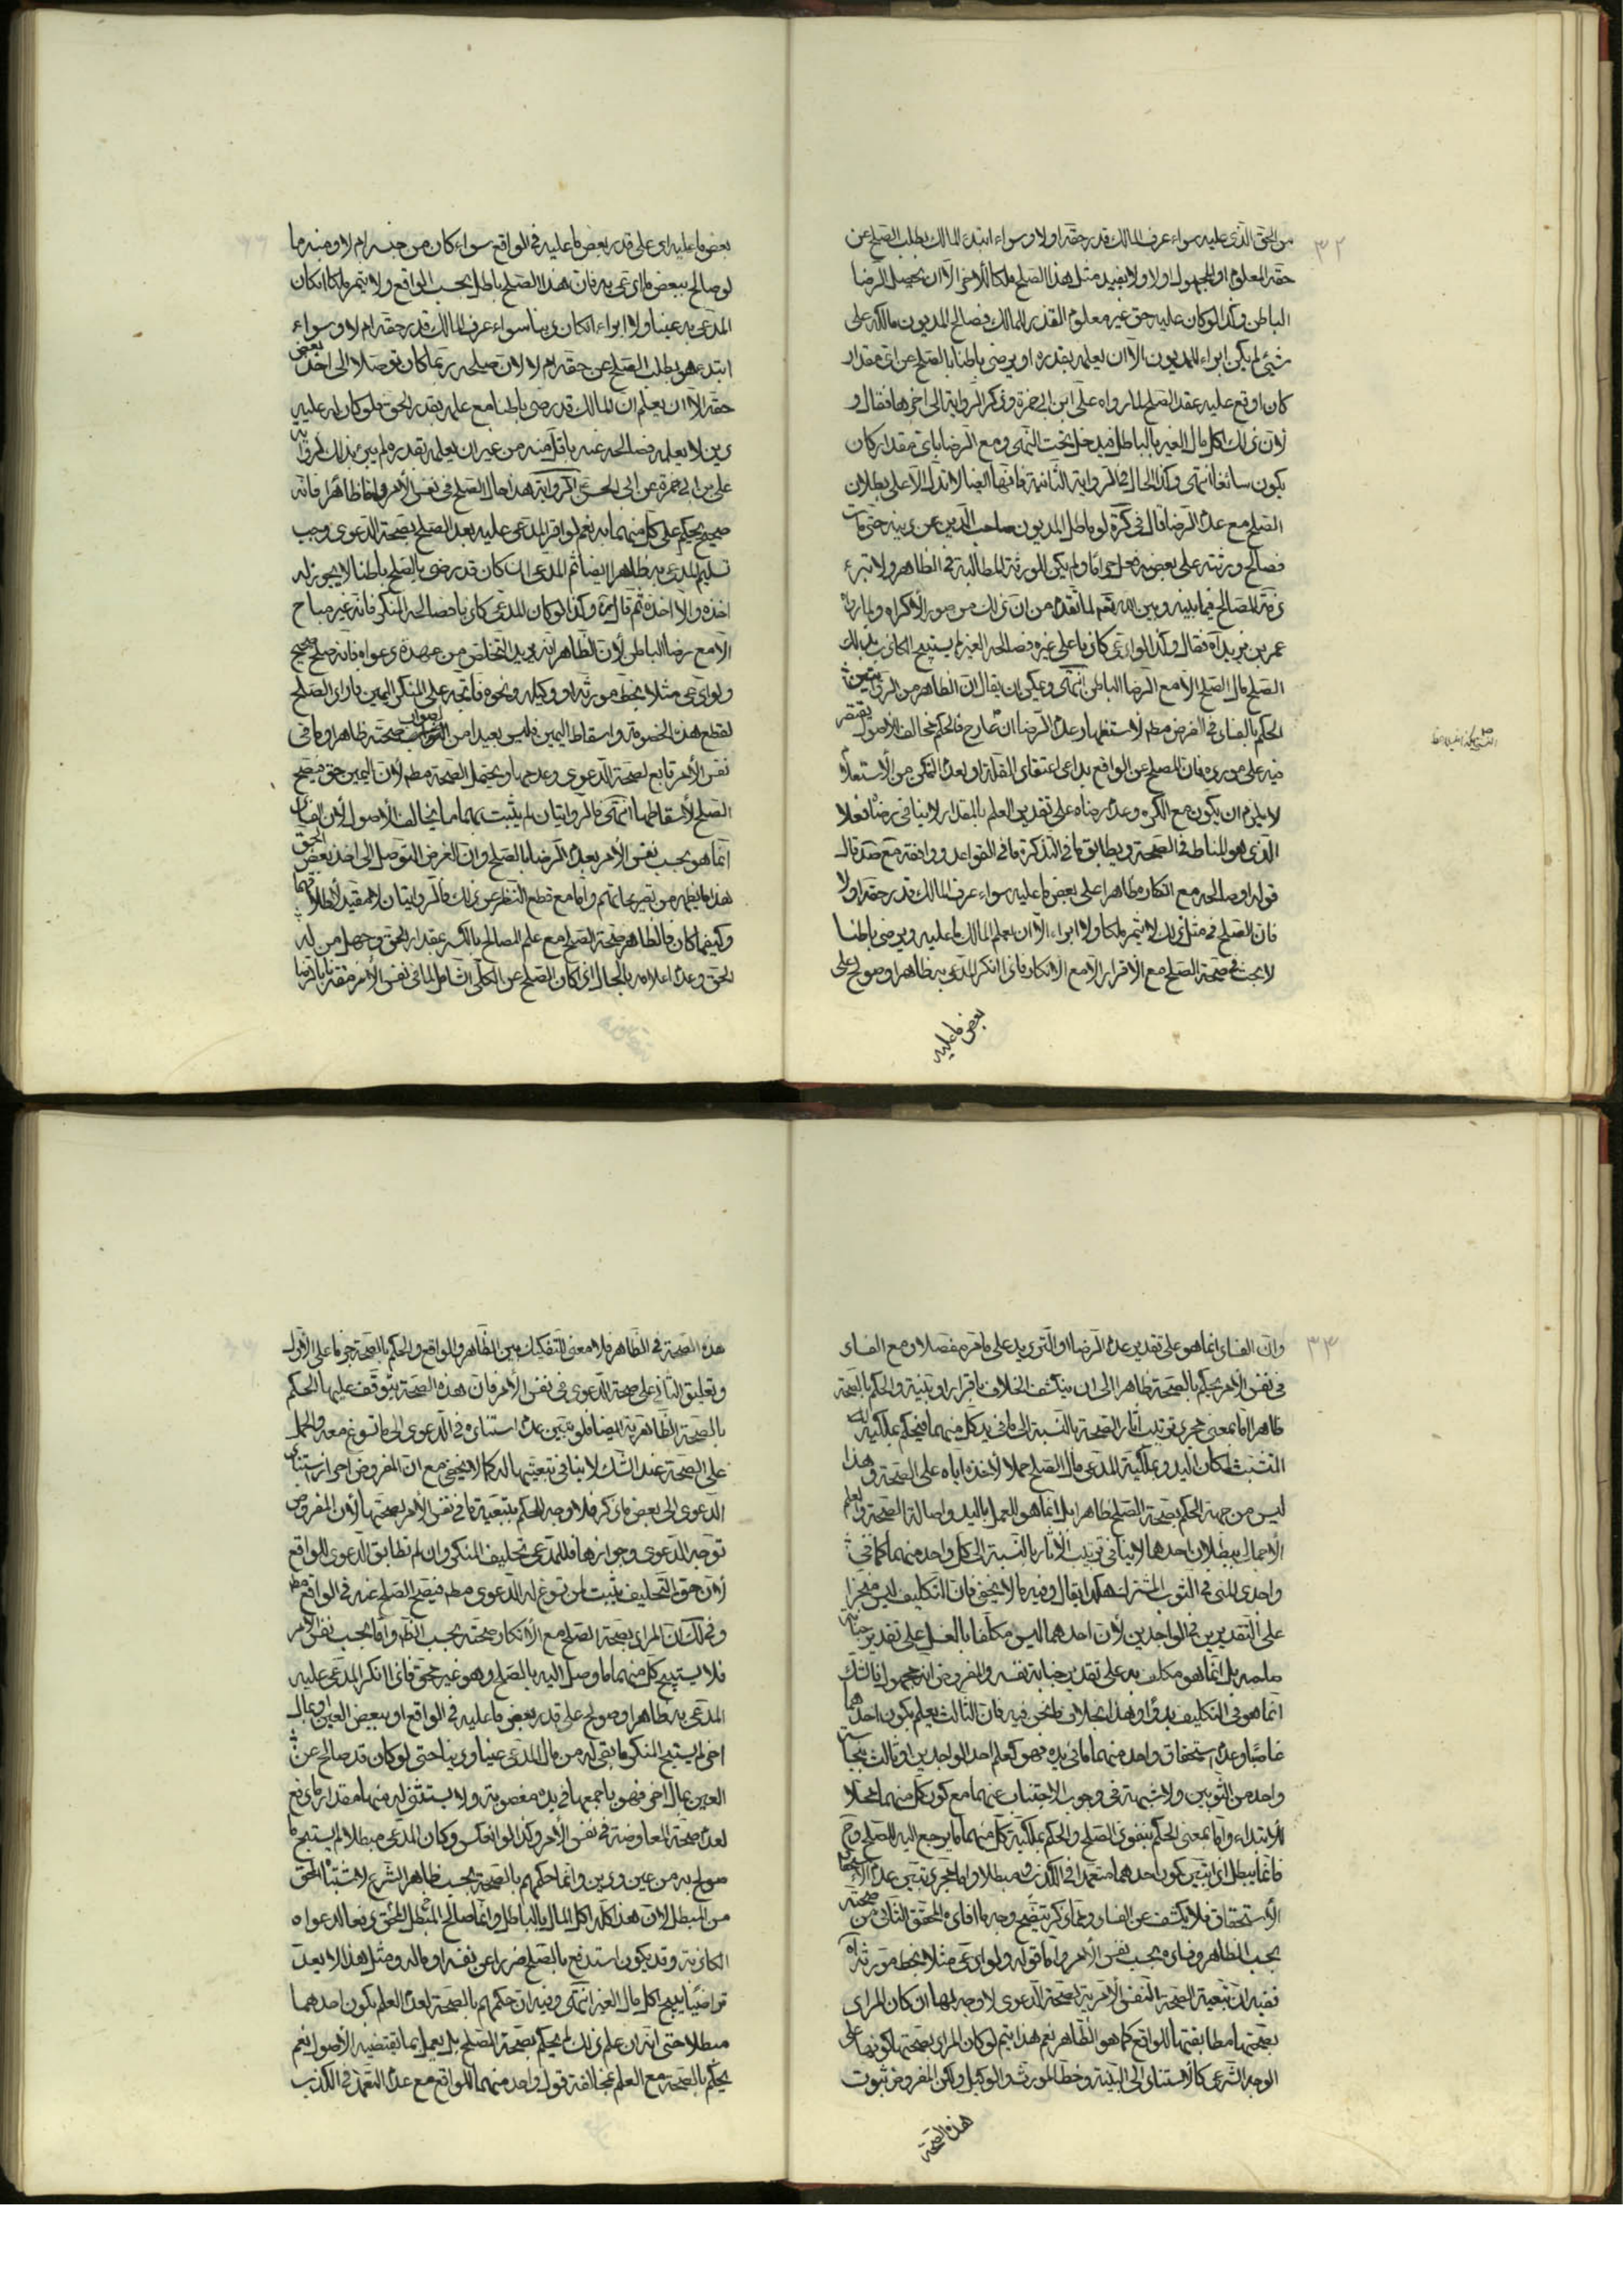 ٣٢
من الحق الذى عليه سواء عرف المالك قدر حقه اولا وسواء ابتدء المالك بطلب الصلح عن
حقه المعلوم او المجهول اولا ولا يفيد مثل هذا الصلح ملكا للآخر الا ان يحصل الرضا
الباطن وكذا لو كان عليه حق غير معلوم القدر للمالك فصالح المديون مالكه على
شىء لم يكن ابراء للمديون الا ان يعلمه بقدره او يرضى باطنا بالصلح عن اى مقدار
كان اوقع عليه عقد الصلح لما رواه على ابن ابى حمزة وذكر الرواية الى اخرها فقال و
لان ذلك اكل مال الغير بالباطل فيدخل تحت النهى ومع الرضا باى مقدار كان
يكون سائغا انتهى وكذا الحال فى الرواية الثانية فانها ايضا لا تدل الا على بطلان
الصلح مع عدم الرضا قال فى كرة لو ماطل المديون صاحب الدين عن دينه حتى مات
فصالح ورثته على بعضه فعل حراما ولم يكن للورثة المطالبة فى الظاهر ولا تبرء
ذمة المصالح فيما بينه وبين الله تعم لما تقدم من ان ذلك من صور الاكراه ولما رواه
عمر بن يزيد آه فقال وكذا لو ادعى كاذبا على غيره فصالحه الغير لم يستبح الكاذب بذلك
الصلح مال الصلح الا مع الرضا الباطن انتهى ويمكن ان يقال ان الظاهر من الروايتين
الحكم بالفساد فى الفرض مطم لاستلزامها وعدم الرضا ان عارج فالحكم مخالف للاصول يقتصر
فيه على مورده فان المصلح عن الواقع بداعى اعتقاد القلة او لعدم التمكن من الاستعلام
لا يلزم ان يكون مع الكره وعدم رضاه على تقدير العلم بالمقدار لا ينافى رضاه فعلا
الذى هو المناط فى الصحة ويطابق ما فى التذكرة ما فى القواعد ووافقه مع صد قال
قوله او صالحه مع انكاره ظاهرا على بعض ما عليه سواء عرف المالك قدر حقه اولا
فان الصلح فى مثل ذلك لا يثمر ملكا ولا ابراء الا ان يعلم المالك لما عليه ويرضى باطنا
لا بحث فى صحة الصلح مع الاقرار الا مع الانكار فاذا انكر المدعى به ظاهرا وصولح على
بعض ما عليه
بعض ما عليه اى على قدر بعض ما عليه فى الواقع سواء كان من جنسه ام لا ومنه ما
لو صالح ببعض ما ادعى به فان هذا الصلح باطل بحسب الواقع ولا يثمر ملكا انكان
المدعى به عينا ولا ابراء انكان دينا سواء عرف المالك قدر حقه ام لا وسواء
ابتدء هو بطلب الصلح عن حقه ام لا لان صلحه ربما كان توصلا الى اخذ بعض
حقه الا ان يعلم ان المالك قد رضى باطنا مع علمه بقدر الحق فلو كان له عليه
دين لا يعلمه فصالحه عنه باقل منه من غير ان يعلمه بقدره لم يبرء بذلك لرواية
على بن ابى حمزة عن ابى الحسن الرواية هذا حال الصلح فى نفس الأمر واما ظاهرا فانه
صحيح يحكم على كل منهما به نعم لو اقر المدعى عليه بعد الصلح بصحة الدعوى وجب
تسليم المدعى به ظاهرا ايضا ثم المدعى ان كان قد رضى بالصلح باطنا لا يجوز له
اخذه والا اخذه ثم قال وكذا لو كان المدعى كاذبا فصالحه المنكر فانه غير مباح
الا مع رضا الباطن لان الظاهر انه يريد التخلص من عهدة دعواه فانه صلح صحيح
ولو ادعى مثلا بخط مورثه او وكيله ونحوه فاتجه على المنكر اليمين فاراد الصلح
لقطع هذه الخصومة واسقاط اليمين فليس بعيدا من الصواب صحته ظاهرا وما فى
نفس الأمر تابع لصحة الدعوى وعدمها ويحتمل الصحة مطم لان اليمين حق فيصح
الصلح لاسقاطها انتهى فالروايتان لم يثبت بهما ما يخالف الأصول لان الفساد
انما هو بحسب نفس الأمر بعدم الرضا بالصلح وان الغرض التوصل الى اخذ بعض الحق
هذا ما يظهر من تصريحاتهم واما مع قطع النظر عن ذلك فالروايتان لا مقيد لاطلاقهما
وكيفما كان فالظاهر صحة الصلح مع علم المصالح بالكسر بمقدار الحق وجهل من له
الحق وعدم اعلامه بالحال اذا كان الصلح عن الكلى الشامل لما فى نفس الأمر مقترنا بالرضا
٣٣
وان الفساد انما هو على تقدير عدم الرضا او التزويد على ما مر مفصلا ومع الفساد
فى نفس الأمر يحكم بالصحة ظاهرا الى ان ينكشف الخلاف باقرار او بينة والحكم بالصحة
ظاهرا اما بمعنى مجرى ترتيب اثار الصحة بالنسبة الى ما فى يد كل منهما فيحكم بملكية
المتشبث لمكان اليد وبملكية المدعى مال الصلح حملا لاخذه اياه على الصحة وهذا
ليس من جهة الحكم بصحة الصلح ظاهرا بل انما هو العمل باليد واصالة الصحة والعلم
الأجمالى ببطلان احدهما لا ينافى ترتيب الأثار بالنسبة الى كل واحد منهما كما فى
واجدى المنى فى الثوب المشترك هكذا يقال وفيه ما لا يخفى فان التكليف ليس منجزا
على التقديرين فى الواجدين لان احدهما ليس مكلفا بالغسل على تقدير جنابة
صاحبه بل انما هو مكلف به على تقدير جنابة نفسه والمفروض انه مجهول فالشك
انما هو فى التكليف بدوا وهذا بخلاف ما نحن فيه فان الثالث يعلم بكون احدهما
غاصبا وعدم استحقاق واحد منهما ما فى يده فهو كعلم احد الواجدين او ثالث بنجاسة
واحد من الثوبين ولا شبهة فى وجوب الاجتناب عنهما مع كون كل منهما محلا
للابتلاء واما بمعنى الحكم بنفوذ الصلح والحكم بملكية كل منهما ما يرجع اليه للصلح وح
فانما يبطل اذا تبين كون احدهما متعمدا فى الكذب ومبطلا واما مجرى تبين عدم الاستحقاق
الأستحقاق فلا يكشف عن الفساد ومما ذكر يتضح وجه ما افاده المحقق الثانى من صحته
بحسب الظاهر وفساده بحسب نفس الأمر واما قوله ولو ادعى مثلا بخط مورثه آه
ففيه ان تبعية الصحة النفس الأمرية لصحة الدعوى لا وجه لها ان كان المراد
بصحتها مطابقتها للواقع كما هو الظاهر نعم هذا يتم لو كان المراد بصحتها كونها على
الوجه الشرعى كالاستناد الى البينة وخط المورث والوكيل ولكن المفروض ثبوت
هذه الصحة
هذه الصحة فى الظاهر فلا معنى للتفكيك بين الظاهر والواقع والحكم بالصحة جزما على الأول
وتعليق الثانى على صحة الدعوى فى نفس الأمر فان هذه الصحة يتوقف عليها الحكم
بالصحة الظاهرية ايضا فلو تبين عدم استناده فى الدعوى الى ما تسوغ معه والحمل
على الصحة عند الشك لا ينافى تبعيتها له كما لا يخفى مع ان المفروض احراز استناد
الدعوى الى بعض ما ذكر فلا وجه للحكم بتبعية ما فى نفس الأمر بصحتها لأن المفروض
توجه الدعوى وجوازها فللمدعى تحليف المنكر وان لم تطابق الدعوى الواقع
لأن حق التحليف يثبت لمن تسوغ له الدعوى مطم فيصح الصلح عنه فى الواقع مطم
وفى لك ان المراد بصحة الصلح مع الأنكار صحته بحسب الظاهر واما بحسب نفس الأمر
فلا يستبيح كل منهما ما وصل اليه بالصلح وهو غير محق فاذا انكر المدعى عليه
المدعى به ظاهرا وصولح على قدر بعض ما عليه فى الواقع او ببعض العين او بمال
اخر لم يستبح المنكر ما بقى له من مال المدعى عينا ودينا حتى لو كان قد صالح عن
العين بمال اخر فهو باجمعها فى يده مغصوبة ولا يستثنى له منها مقدار ما دفع
لعدم صحة المعاوضة فى نفس الأمر وكذا لو انعكس وكان المدعى مبطلا لم يستبح ما
صولح به من عين ودين وانما حكمهم بالصحة بحسب ظاهر الشرع لاشتباه المحق
من المبطل لان هذا كله اكل المال بالباطل وانما صالح المبطل المحق دفعا لدعواه
الكاذبة وقد يكون استدفع بالصلح ضررا عن نفسه او ماله ومثل هذا لا يعد
تراضيا يبيح اكل مال الغير انتهى وفيه ان حكمهم بالصحة لعدم العلم بكون احدهما
مبطلا حتى انه ان علم ذلك لم يحكم بصحة الصلح بل يعمل بما تقتضيه الأصول نعم
يحكم بالصحة مع العلم بمخالفة قول واحد منهما للواقع مع عدم التعمد فى الكذب